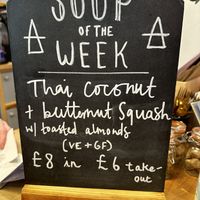 SOUP
OF THE
WEEK
Thai Coconut
+ butternut Squash
w/ toasted almonds
(VE + GF)
£8 in £6 take-
out